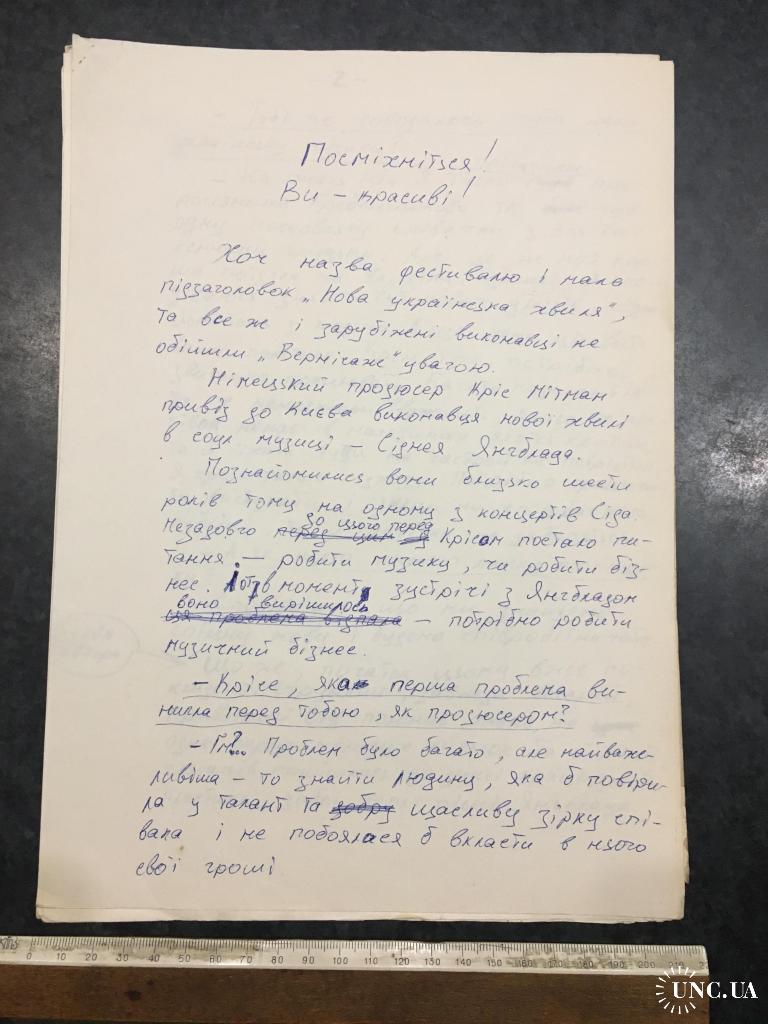 Посміхніться!
Ви – красиві!
Хоч назва фестивалю і мала
підзаголовок „Нова українська хвиля",
та все ж і зарубіжні виконавці не
обійшли „Вернісаж" увагою.
Німецький продюсер Кріс Мітман
привіз до Києва виконавця нової хвилі
в соул музиці – Сіднея Янгблада.
Познайомились вони близько шести
років тому на одному з концертів Сіда.
до цього перед
Незадовго перед цим з Крісом постало пи-
тання – робити музику, чи робити біз-
нес. І от в момент зустрічі з Янгбладом
воно вирішилось
ця проблема відпала – потрібно робити
музичний бізнес.
– Кріче, яка перша проблема ви-
никла перед тобою, як продюсером?
– Гм?... Проблем було багато, але найваж-
ливіша – то знайти людину, яка б повіри-
ла у талант та добру щасливу зірку спі-
вака і не побоялася б вкласти в нього
свої гроші
0 10 20 30 40 50 60 70 80 90 100 110 120 130 140 150 160 170 180 190 200 210
UNC.UA